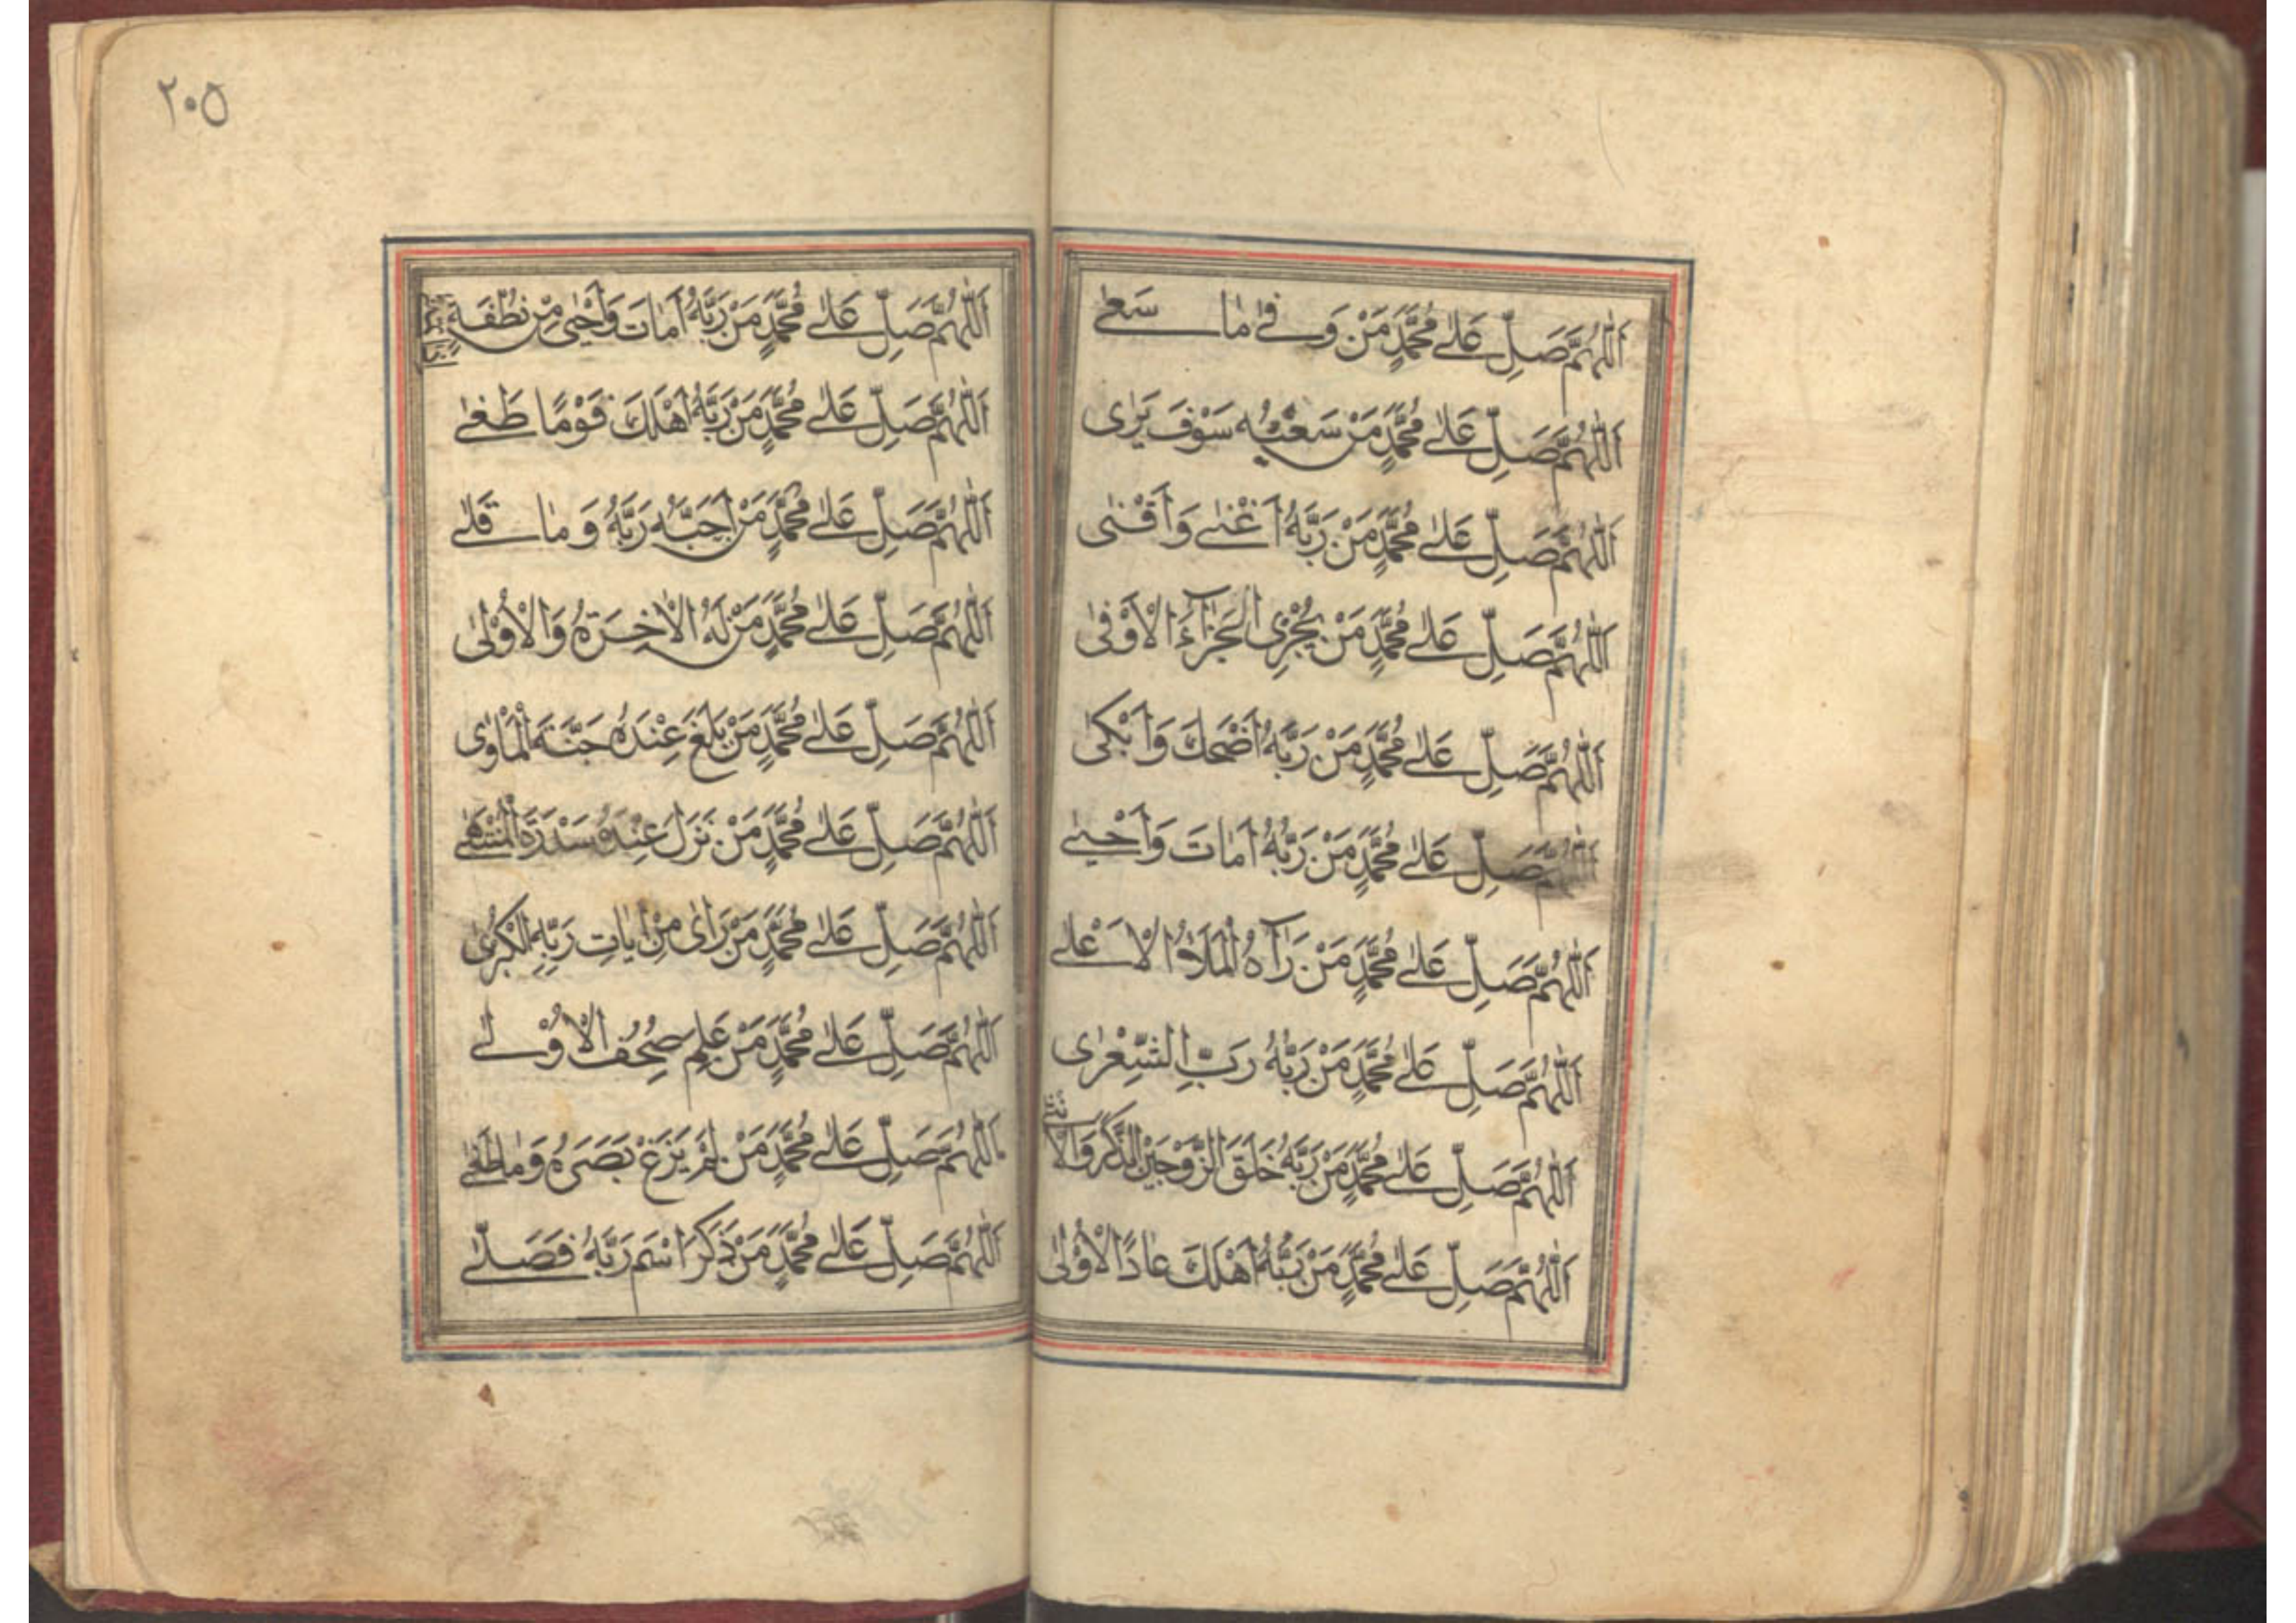 اَللّٰهُمَّ صَلِّ عَلٰى مُحَمَّدٍ مَنْ وَفٰى مَا سَعٰى
اَللّٰهُمَّ صَلِّ عَلٰى مُحَمَّدٍ مَنْ سَعْيُهُ سَوْفَ يَرٰى
اَللّٰهُمَّ صَلِّ عَلٰى مُحَمَّدٍ مَنْ رَبُّهُ اَغْنٰى وَاَقْنٰى
اَللّٰهُمَّ صَلِّ عَلٰى مُحَمَّدٍ مَنْ يُجْزٰى الْجَزَآءَ الْاَوْفٰى
اَللّٰهُمَّ صَلِّ عَلٰى مُحَمَّدٍ مَنْ رَبُّهُ اَضْحَكَ وَاَبْكٰى
اَللّٰهُمَّ صَلِّ عَلٰى مُحَمَّدٍ مَنْ رَبُّهُ اَمَاتَ وَاَحْيٰى
اَللّٰهُمَّ صَلِّ عَلٰى مُحَمَّدٍ مَنْ رَآهُ الْمَلَاُ الْاَعْلٰى
اَللّٰهُمَّ صَلِّ عَلٰى مُحَمَّدٍ مَنْ رَبُّهُ رَبُّ الشِّعْرٰى
اَللّٰهُمَّ صَلِّ عَلٰى مُحَمَّدٍ مَنْ رَبُّهُ خَلَقَ الزَّوْجَيْنِ الذَّكَرَ وَالْاُنْثٰى
اَللّٰهُمَّ صَلِّ عَلٰى مُحَمَّدٍ مَنْ رَبُّهُ اَهْلَكَ عَادًا الْاُوْلٰى
٢٠٥
اَللّٰهُمَّ صَلِّ عَلٰى مُحَمَّدٍ مَنْ رَبُّهُ اَمَاتَ وَاَحْيٰى مِنْ نُطْفَةٍ
اَللّٰهُمَّ صَلِّ عَلٰى مُحَمَّدٍ مَنْ رَبُّهُ اَهْلَكَ قَوْمًا طَغٰى
اَللّٰهُمَّ صَلِّ عَلٰى مُحَمَّدٍ مَنْ اَحَبَّهُ رَبُّهُ وَمَا قَلٰى
اَللّٰهُمَّ صَلِّ عَلٰى مُحَمَّدٍ مَنْ لَهُ الْاٰخِرَةُ وَالْاُوْلٰى
اَللّٰهُمَّ صَلِّ عَلٰى مُحَمَّدٍ مَنْ بَلَغَ عِنْدَهُ جَنَّةَ الْمَاْوٰى
اَللّٰهُمَّ صَلِّ عَلٰى مُحَمَّدٍ مَنْ نَزَلَ عِنْدَهُ سَدْرَةَ الْمُنْتَهٰى
اَللّٰهُمَّ صَلِّ عَلٰى مُحَمَّدٍ مَنْ رَاٰى مِنْ اٰيَاتِ رَبِّهِ الْكُبْرٰى
اَللّٰهُمَّ صَلِّ عَلٰى مُحَمَّدٍ مَنْ عَلِمَ صُحُفَ الْاُوْلٰى
اَللّٰهُمَّ صَلِّ عَلٰى مُحَمَّدٍ مَنْ لَمْ يَزَغْ بَصَرُهُ وَمَا طَغٰى
اَللّٰهُمَّ صَلِّ عَلٰى مُحَمَّدٍ مَنْ ذَكَرَ اسْمَ رَبِّهُ فَصَلّٰى